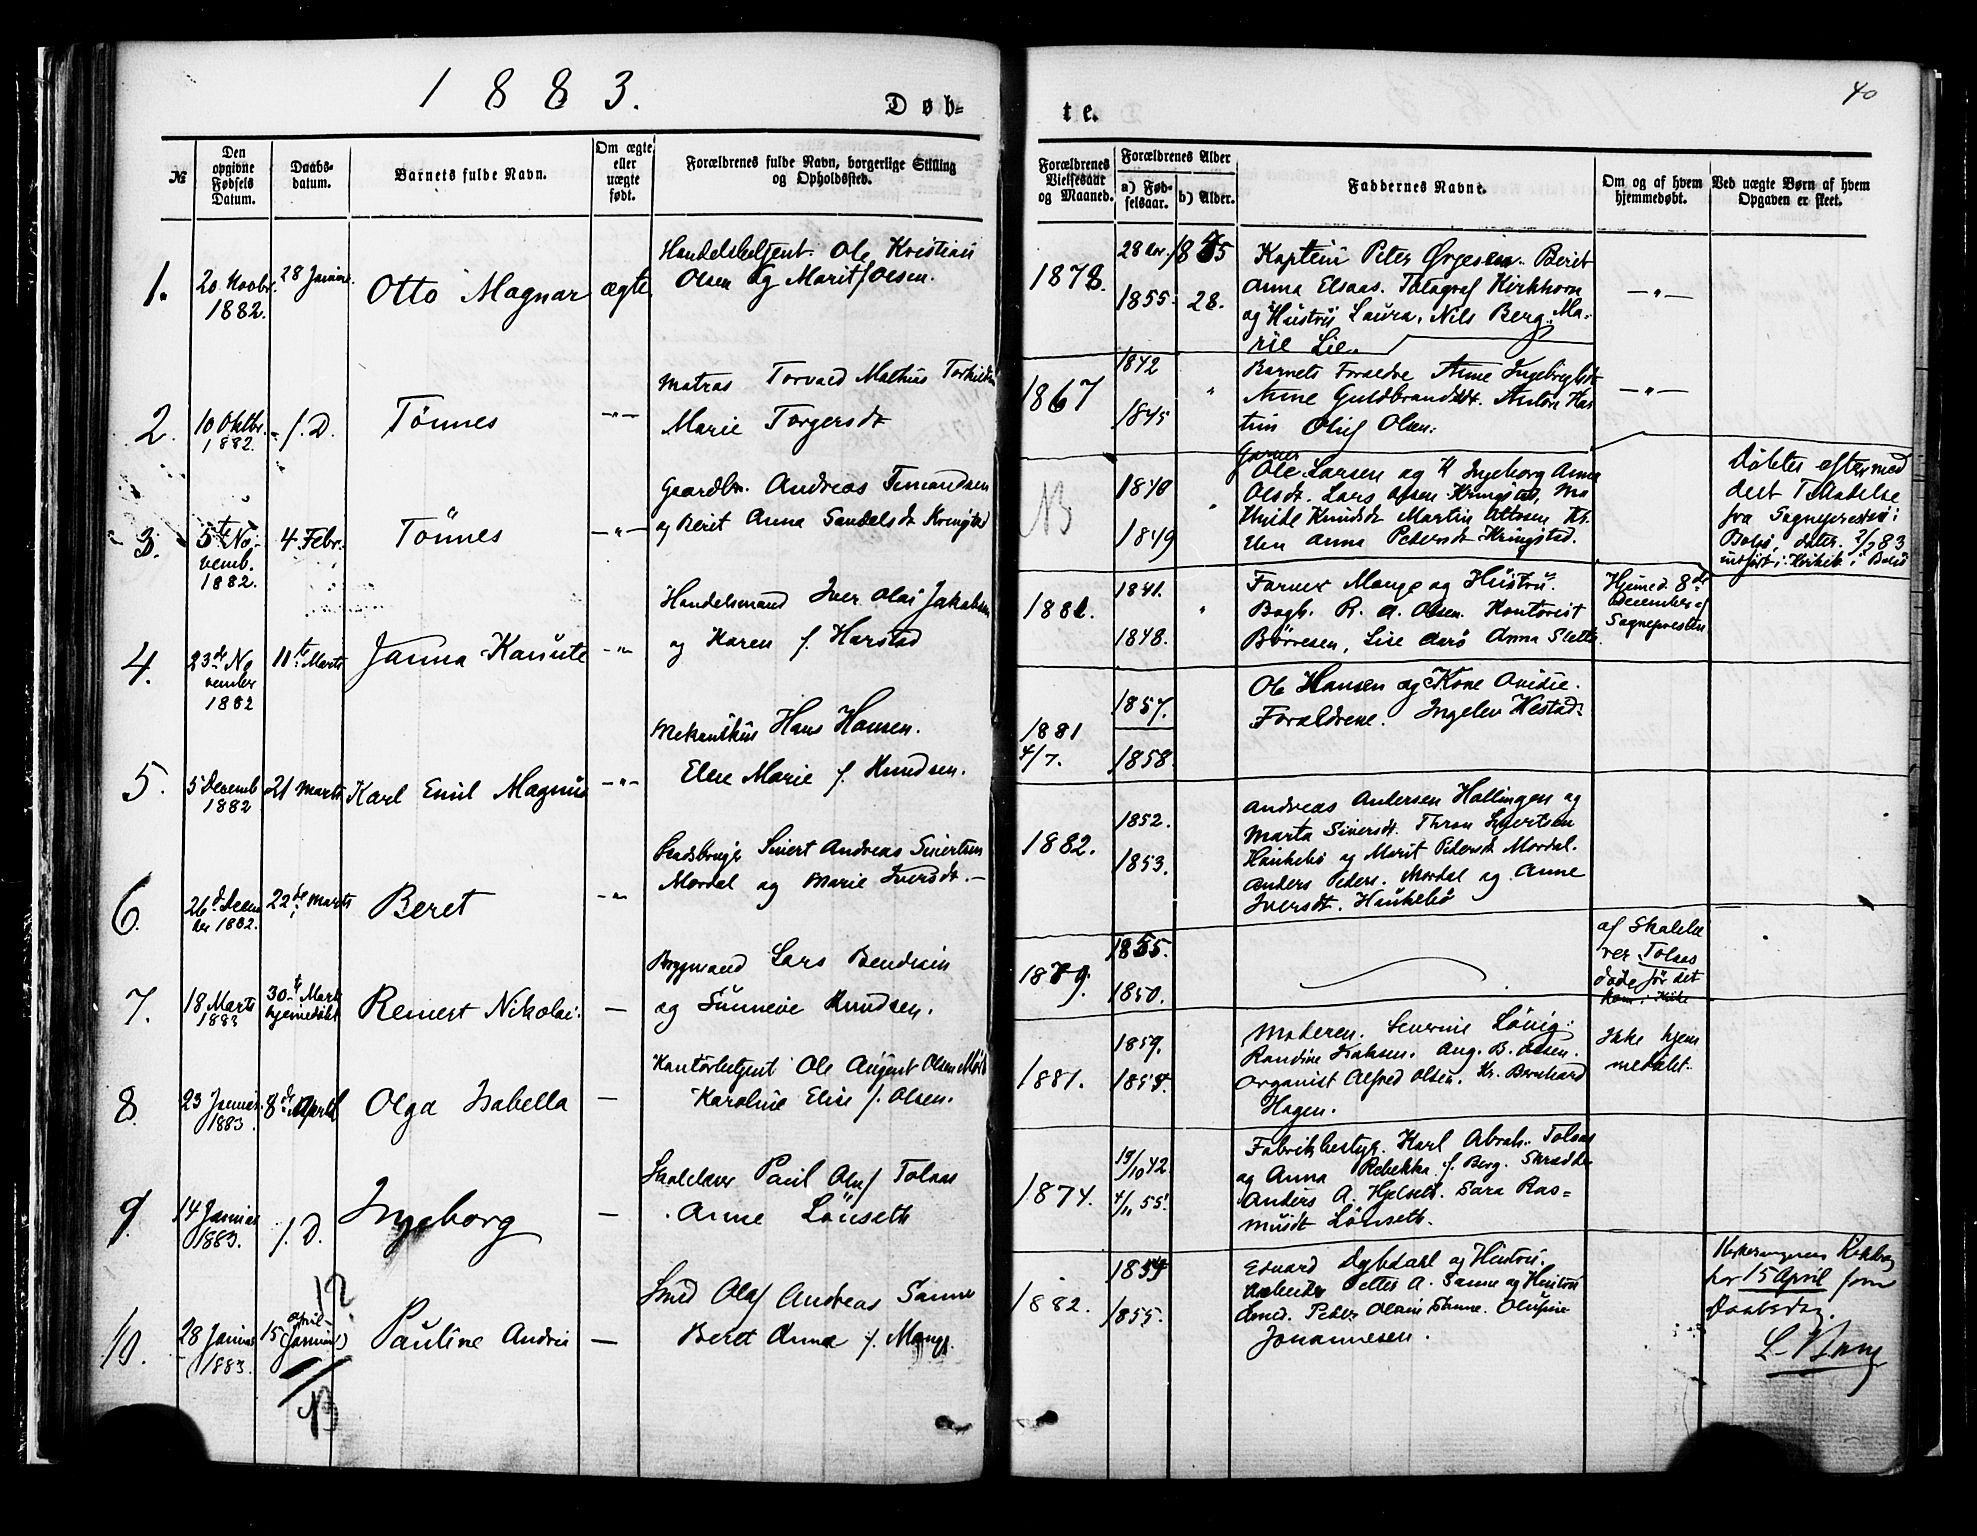 1883.
Døb=
te.
40
№
Den opgivne Fødsels Datum.
Daabs-datum.
Barnets fulde Navn.
Om ægte eller uægte født.
Forældrenes fulde Navn, borgerlige Stilling og Opholdssted.
Forældrenes Vielsesaar og Maaned.
Forældrenes Alder
a) Fød-selsaar.
b) Alder.
Faddernes Navne.
Om og af hvem hjemmedøbt.
Ved uægte Børn af hvem Opgaven er skeet.
1.
20 Novbr.
1882.
28 Januar.
Otto Magnar
ægte
Handelsbetjent. Ole Kristian
Olsen og Marit f. Olsen.
1878.
1855.
28.
Kaptein Peter Ørjesen. Berit
Anna Elsaas. Fotograf Kirkhorn
og Hustru Laura. Nils Berg. Ma-
rie Lie.
— " —
2.
10 Oktbr.
1882.
f. D.
Tönnes
— " —
Matros Torvald Mathus Torkildsen
Marie Torgersdt
1867
1842
1845
"
Barnets Forældre Anne Ingebrigtst
Anne Guldbrandsdt. Anton Kas
tim Oluf Olsen.
— " —
3.
5te No-
vemb.
1882.
4 Febr.
Tönnes
— " —
Gaardbr. Andreas Timandsen
og Berit Anna Sandelsdt Kringstad
NB
1840
1849
"
Ole Larsen og H Ingeborg Anna
Olsdt. Lars Olsen Kringstad, Ma
Knudsdt Martin Ottosen Kr.
Anna Pedersdt Kringstad.
Døbtes efter med
delt Tilladelse
fra Sognepresten i
Bolsø, dater. 2/2 83
indført i Kirkeb. i Bolsø
4.
23de No
vember
1882
11te Marts
Janna Kanute
— " —
Handelsmand Iver Olai Jakobsen
og Karen f. Harstad
1881.
1841.
1848.
"
Farver Mange og Hustru.
Bagb. R. A. Olsen. Kontorist
Børresen, Lise Aarø Anna Slette
Hjemmed. 8de
December af
Sognepresten
5.
5 Decemb
1882
21 Marts
Karl Emil Magnus
— " —
Mekanikus Hans Hansen.
Elen Marie f. Knudsen.
1881
4/7.
1857.
1858.
Ole Hansen og Kone Ovidie.
Forældrene. Ingelev Hestad.
6.
26d Decem
ber 1882.
22de Marts
Beret
— " —
Sivert Andreas Sivertsen
Mordal og Marie Iversdt. —
1882.
1852.
1853.
Andreas Andersen Hollingen og
Marta Siversdt. Thron Sivertsen
Haukebø og Marit Pedersdt Mordal.
Anders Peders. Mordal og Anne
Iversdt. Haukebø
7.
18 Marts
1883
30te Marts
hjemedøbt
Remert Nikolai.
—
Brygmand Lars Bendixsen
og Sünneve Knudsen.
1879.
1855.
1850.
af Skolelæ
rer Tolaas
døde før det
kom i Kirke
8.
23 Januar.
1883.
8de April
Olga Isabella
—
Kontorbetjent Ole August Olsen
Karoline Elise f. Olsen.
1881.
1859.
1858.
Moderen. Severine Lönig.
Randine Isaksen. Aug. B. Olsen.
Organist Alfred Olsen. Kr. Bernhard
Hagen.
Ikke hjem
medøbt.
9.
14 Januar
1883.
f. D.
Ingeborg
—
Skolelærer Paul Oluf Tolaas
Anne Lönseth
1874.
19/10 42
4/11 55.
Fabrikbestyr. Karl Abrah. Tolaas
og Anna Rebekka f. Berg. Skrædder
Anders A. Hjelset. Sara Ras=
musdt Lønseth.
10.
28 Januar
1883.
15 April
(Januar)
12
NB
Pauline Andrea
—
Smed Olaf Andreas Sanne
Beret Anna f. Mange.
1882.
1854
1855.
Edvard Dybdahl og Hustru.
Arbeider Petter A. Sanne og Hustru
Smed. Peder Olsen Sanne. Olufine
Johannesen.
Kirkesangerens Kirkbog
har 15 April som
Daabsdag